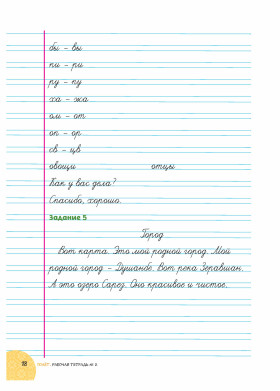 бы – вы
пи – ри
ру – пу
ха – жа
ом – от
оп – ор
св – цв
овощи отцы
Как у вас дела?
Спасибо, хорошо.
Задание 5
Город
Вот карта. Это мой родной город. Мой
родной город – Душанбе. Вот река Зеравшан.
А это озеро Сарез. Оно красивое и чистое.
18 РАБОЧАЯ ТЕТРАДЬ № 2